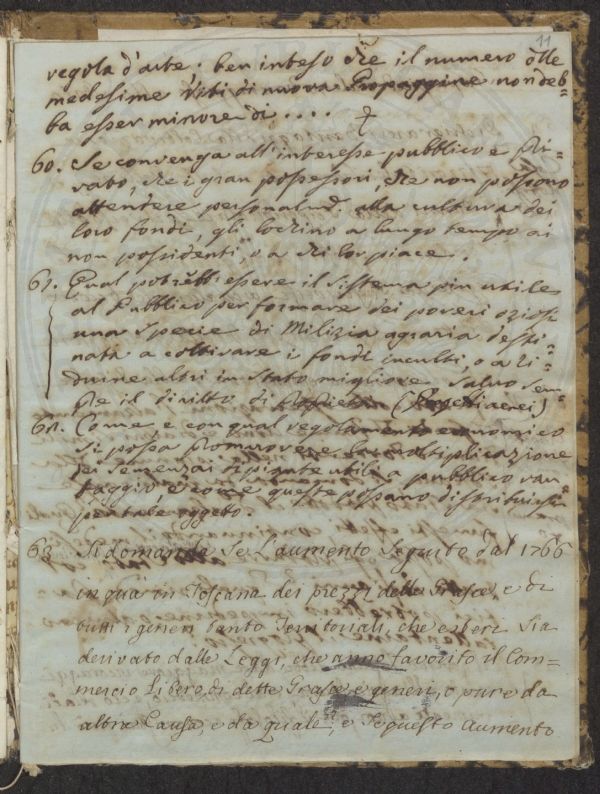 11
regola d'arte: ben inteso che il numero delle
medesime Viti di nuova Propaggine non deb=
ba esser minore di ....
60. Se convenga all'interesse pubblico e Pri=
vato, che i gran possessori, che non possono
attendere personalm. alla cultura dei
loro fondi, gli lochino a lungo tempo ai
non possidenti, o a chi lor piace.
61. Qual potrebb'essere il sistema piu utile
al Pubblico per formare dei poveri oziosi
una specie di Milizia agraria desti=
nata a coltivare i fondi inculti, o a ri=
durne altri in stato migliore salvo sem=
pre il diritto di Proprietà (Progetti aerei)
62. Come e con qual regolamento economico
si possa promuovere la moltiplicazione
dei semenzai di piante utili a pubblico van=
taggio, e come queste possano distribuirsi
per tale oggeto.
63 Si domanda Se L'aumento Seguito dal 1766
in qua in Toscana dei prezzi delle Grasce, e di
tutti i generi tanto Territoriali, che esteri Sia
derivato dalle Leggi, che anno favorito il Com=
mercio Libero di dette Grasce e generi, o pure da
altra Causa, e da quale, e Se questo aumento